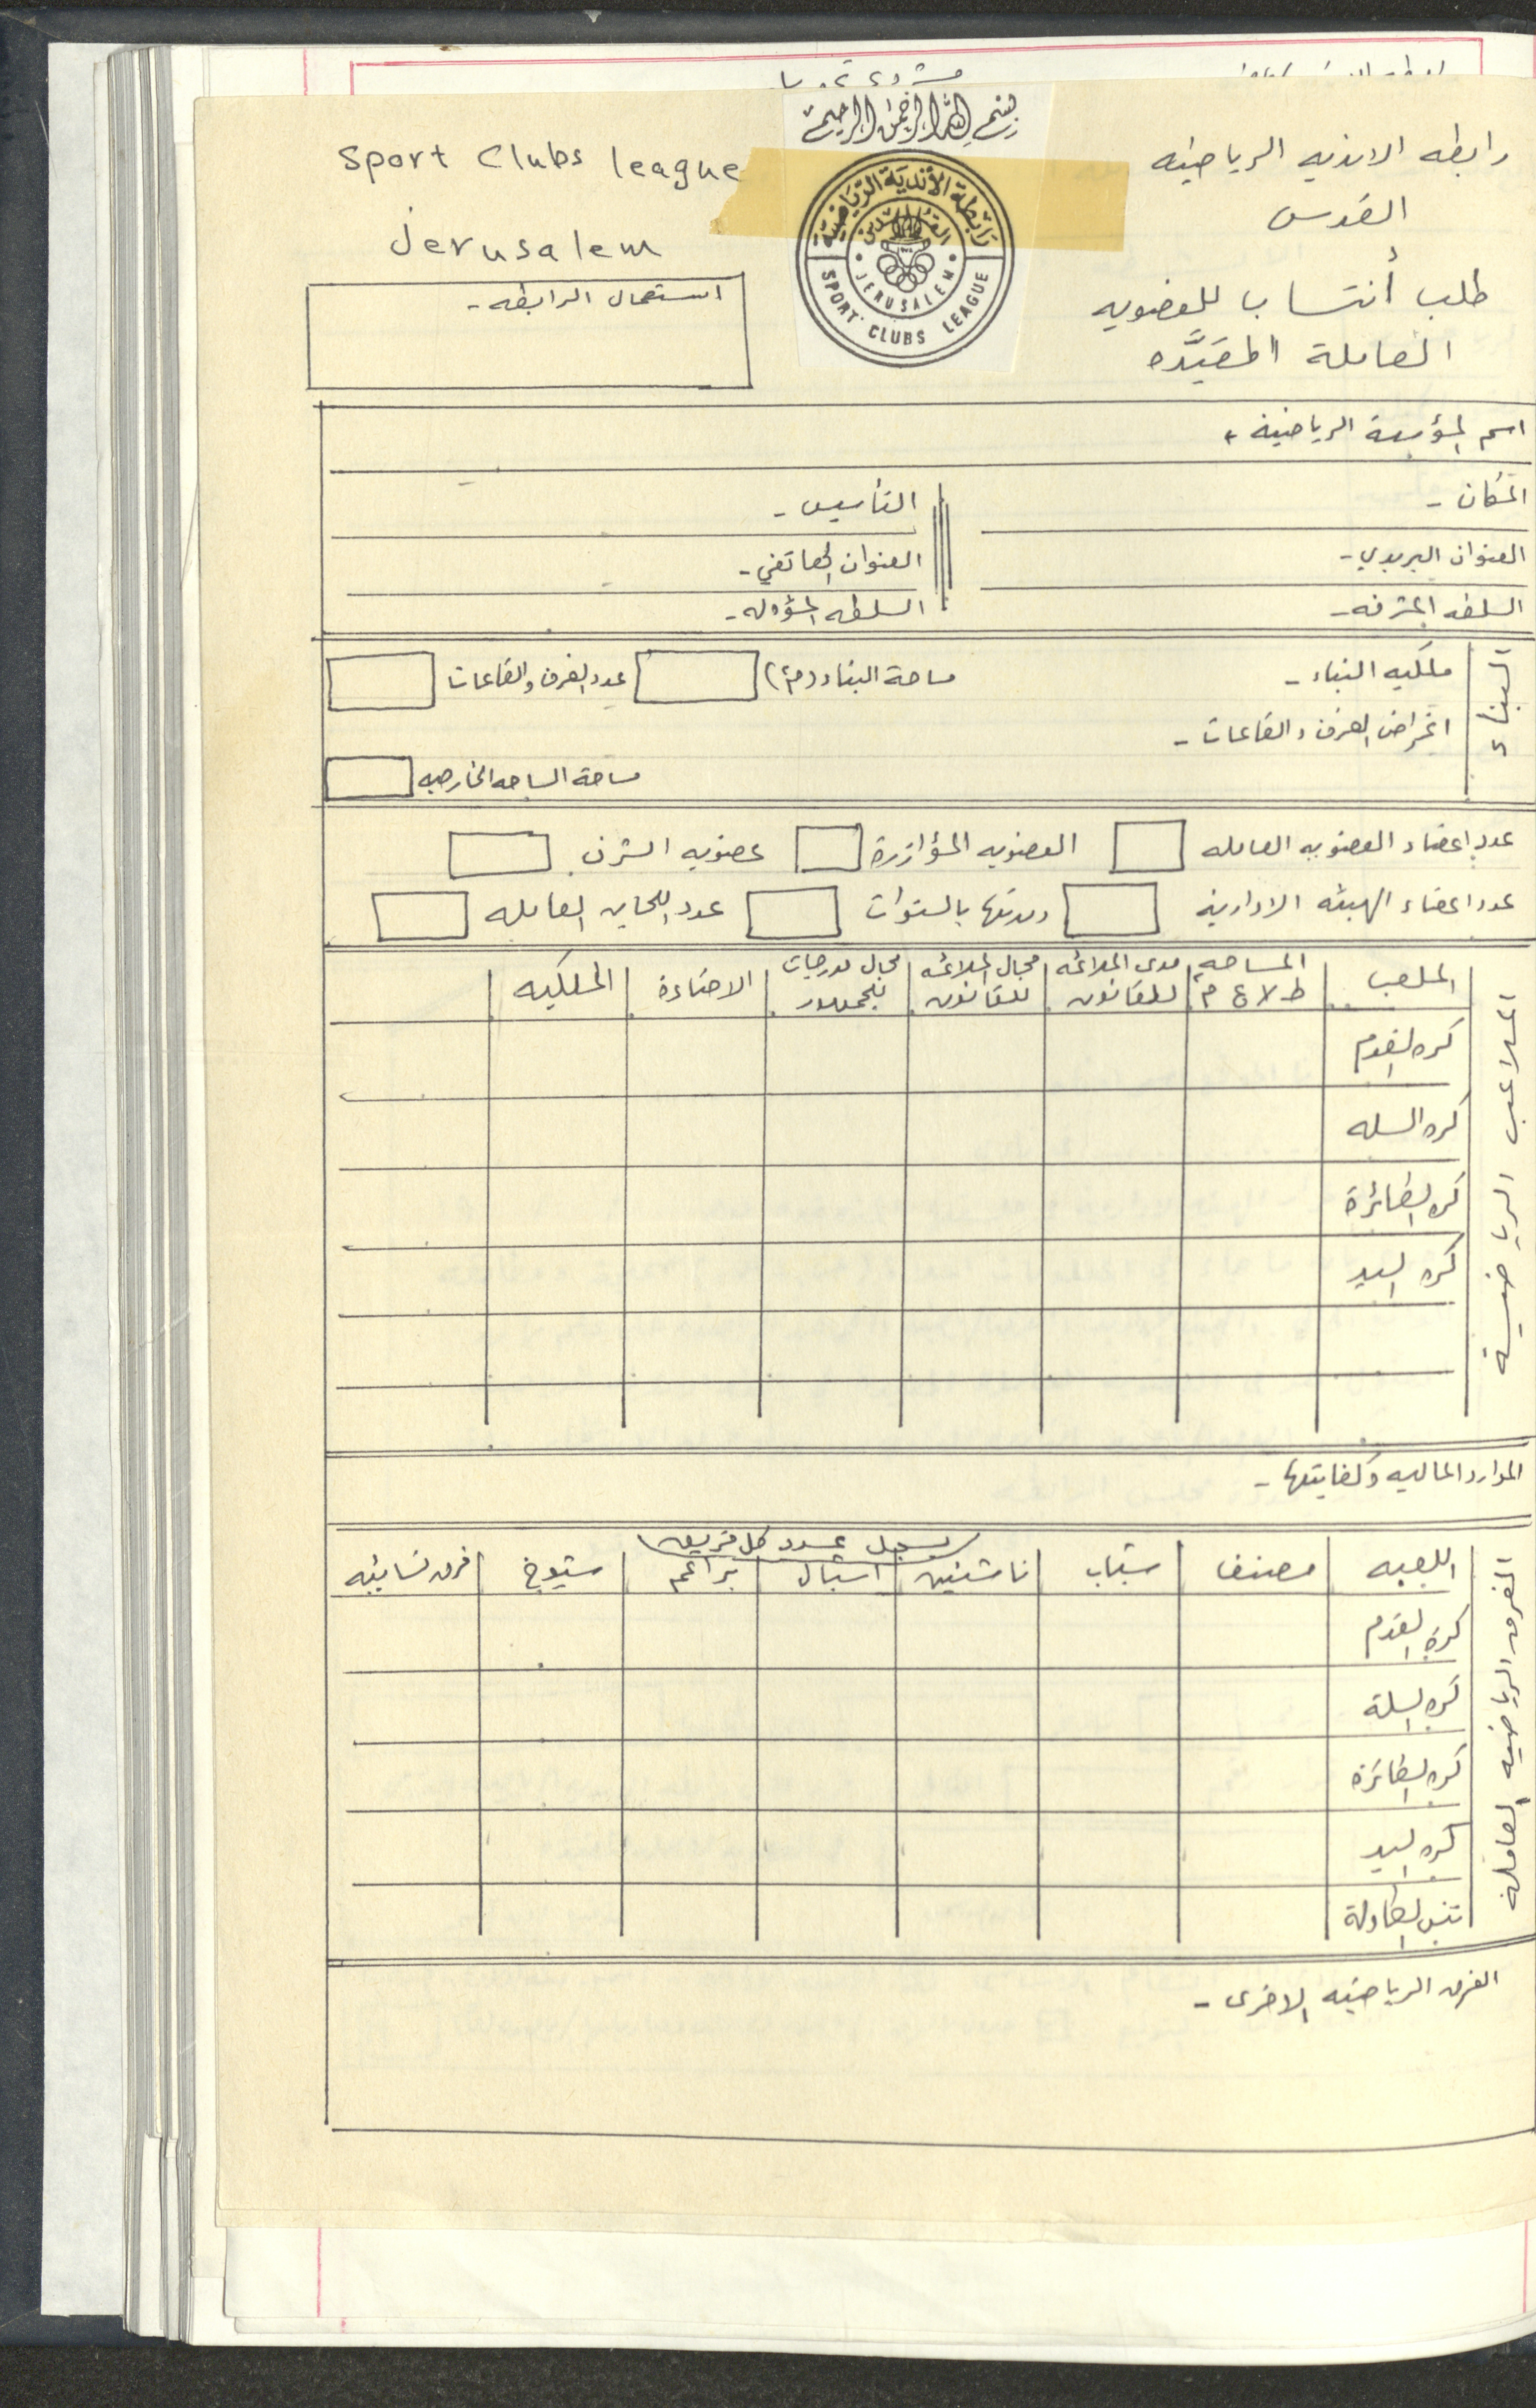 بسم الله الرحمن الرحيم
رابطه الانديه الرياضيه
القدس
Sport Clubs league
Jerusalem
رابطة الأندية الرياضية
القدس
JERUSALEM
SPORT CLUBS LEAGUE
طلب أنتساب للعضويه
العاملة المقيَّده
استعمال الرابطه -
اسم المؤسسة الرياضية -
المكان -
التأسيس -
العنوان البريدي -
العنوان الهاتفي -
السلطه المشرفه -
السلطه المسؤوله -
البناء
ملكيه البناء -
مساحة البناء (م٢)
عدد الغرف والقاعات
اغراض الغرف والقاعات -
مساحة الساحه الخارجيه
عدد اعضاء العضويه العامله
العضويه المؤازرة
عضويه الشرف
عدد اعضاء الهيئه الادارية
ومدتها بالسنوات
عدد اللجان العامله
الملاعب الرياضية
الملعب
المساحه ط × ع م
مدى الملائمه للقانون
مجال الملائمه للقانون
مجال مدرجات للجمهور
الاضاءة
الملكيه
كره القدم
كره السله
كره الطائرة
كره اليد
الموارد الماليه وكفايتها -
الفرق الرياضيه العاملة
يسجل عدد كل فريق
اللعبه
مصنف
شباب
ناشئين
اشبال
براعم
شيوخ
فرق نسائيه
كرة القدم
كره السلة
كره الطائرة
كره اليد
تنس الطاولة
الفرق الرياضيه الاخرى -